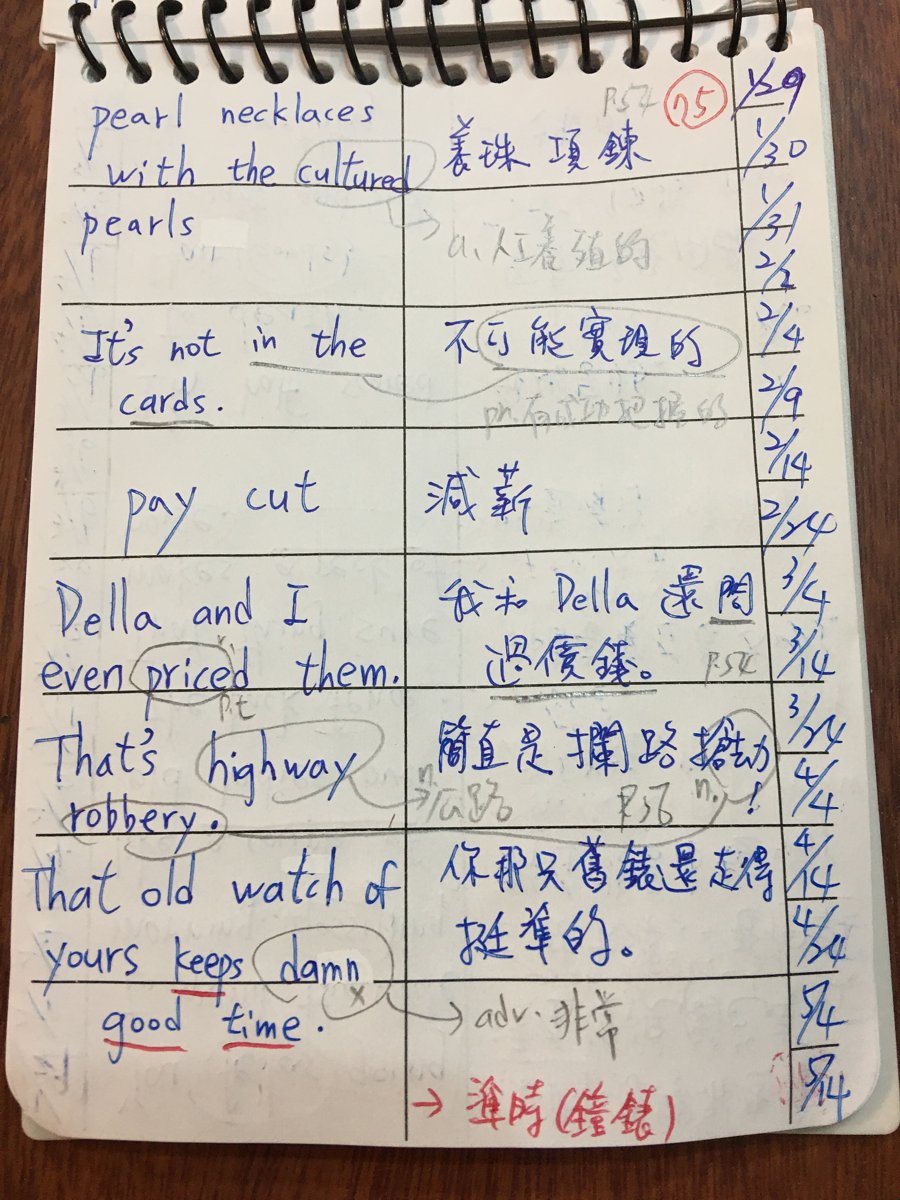 P.54 75
pearl necklaces
with the cultured
pearls
養珠項鍊
a.人工養殖的
It's not in the
cards.
不可能實現的
ph.有成功把握的
pay cut
減薪
Della and I
even priced them.
p.t
我和 Della 還問
過價錢。 P.54
That's highway
robbery.
簡直是攔路搶劫
!
n.
公路
P.56 n.
That old watch of
yours keeps damn
good time.
你那只舊錶還走得
挺準的。
x
adv. 非常
→ 準時(鐘錶)
1/29
1/30
1/31
2/2
2/4
2/9
2/14
2/24
3/4
3/14
3/24
4/4
4/14
4/24
5/4
5/14